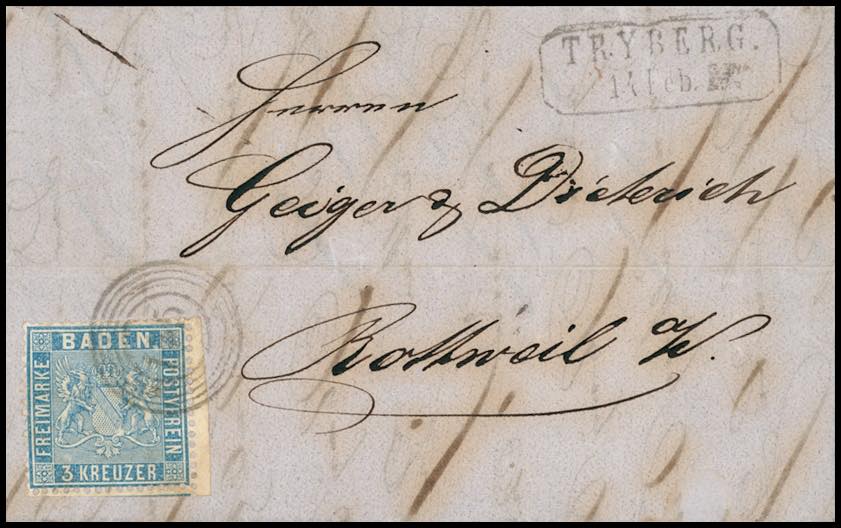 TRYBERG.
14 Feb.
Herren
Geiger & Dieterich
Rottweil a/N.
BADEN
FREIMARKE
POSTVEREIN
3 KREUZER